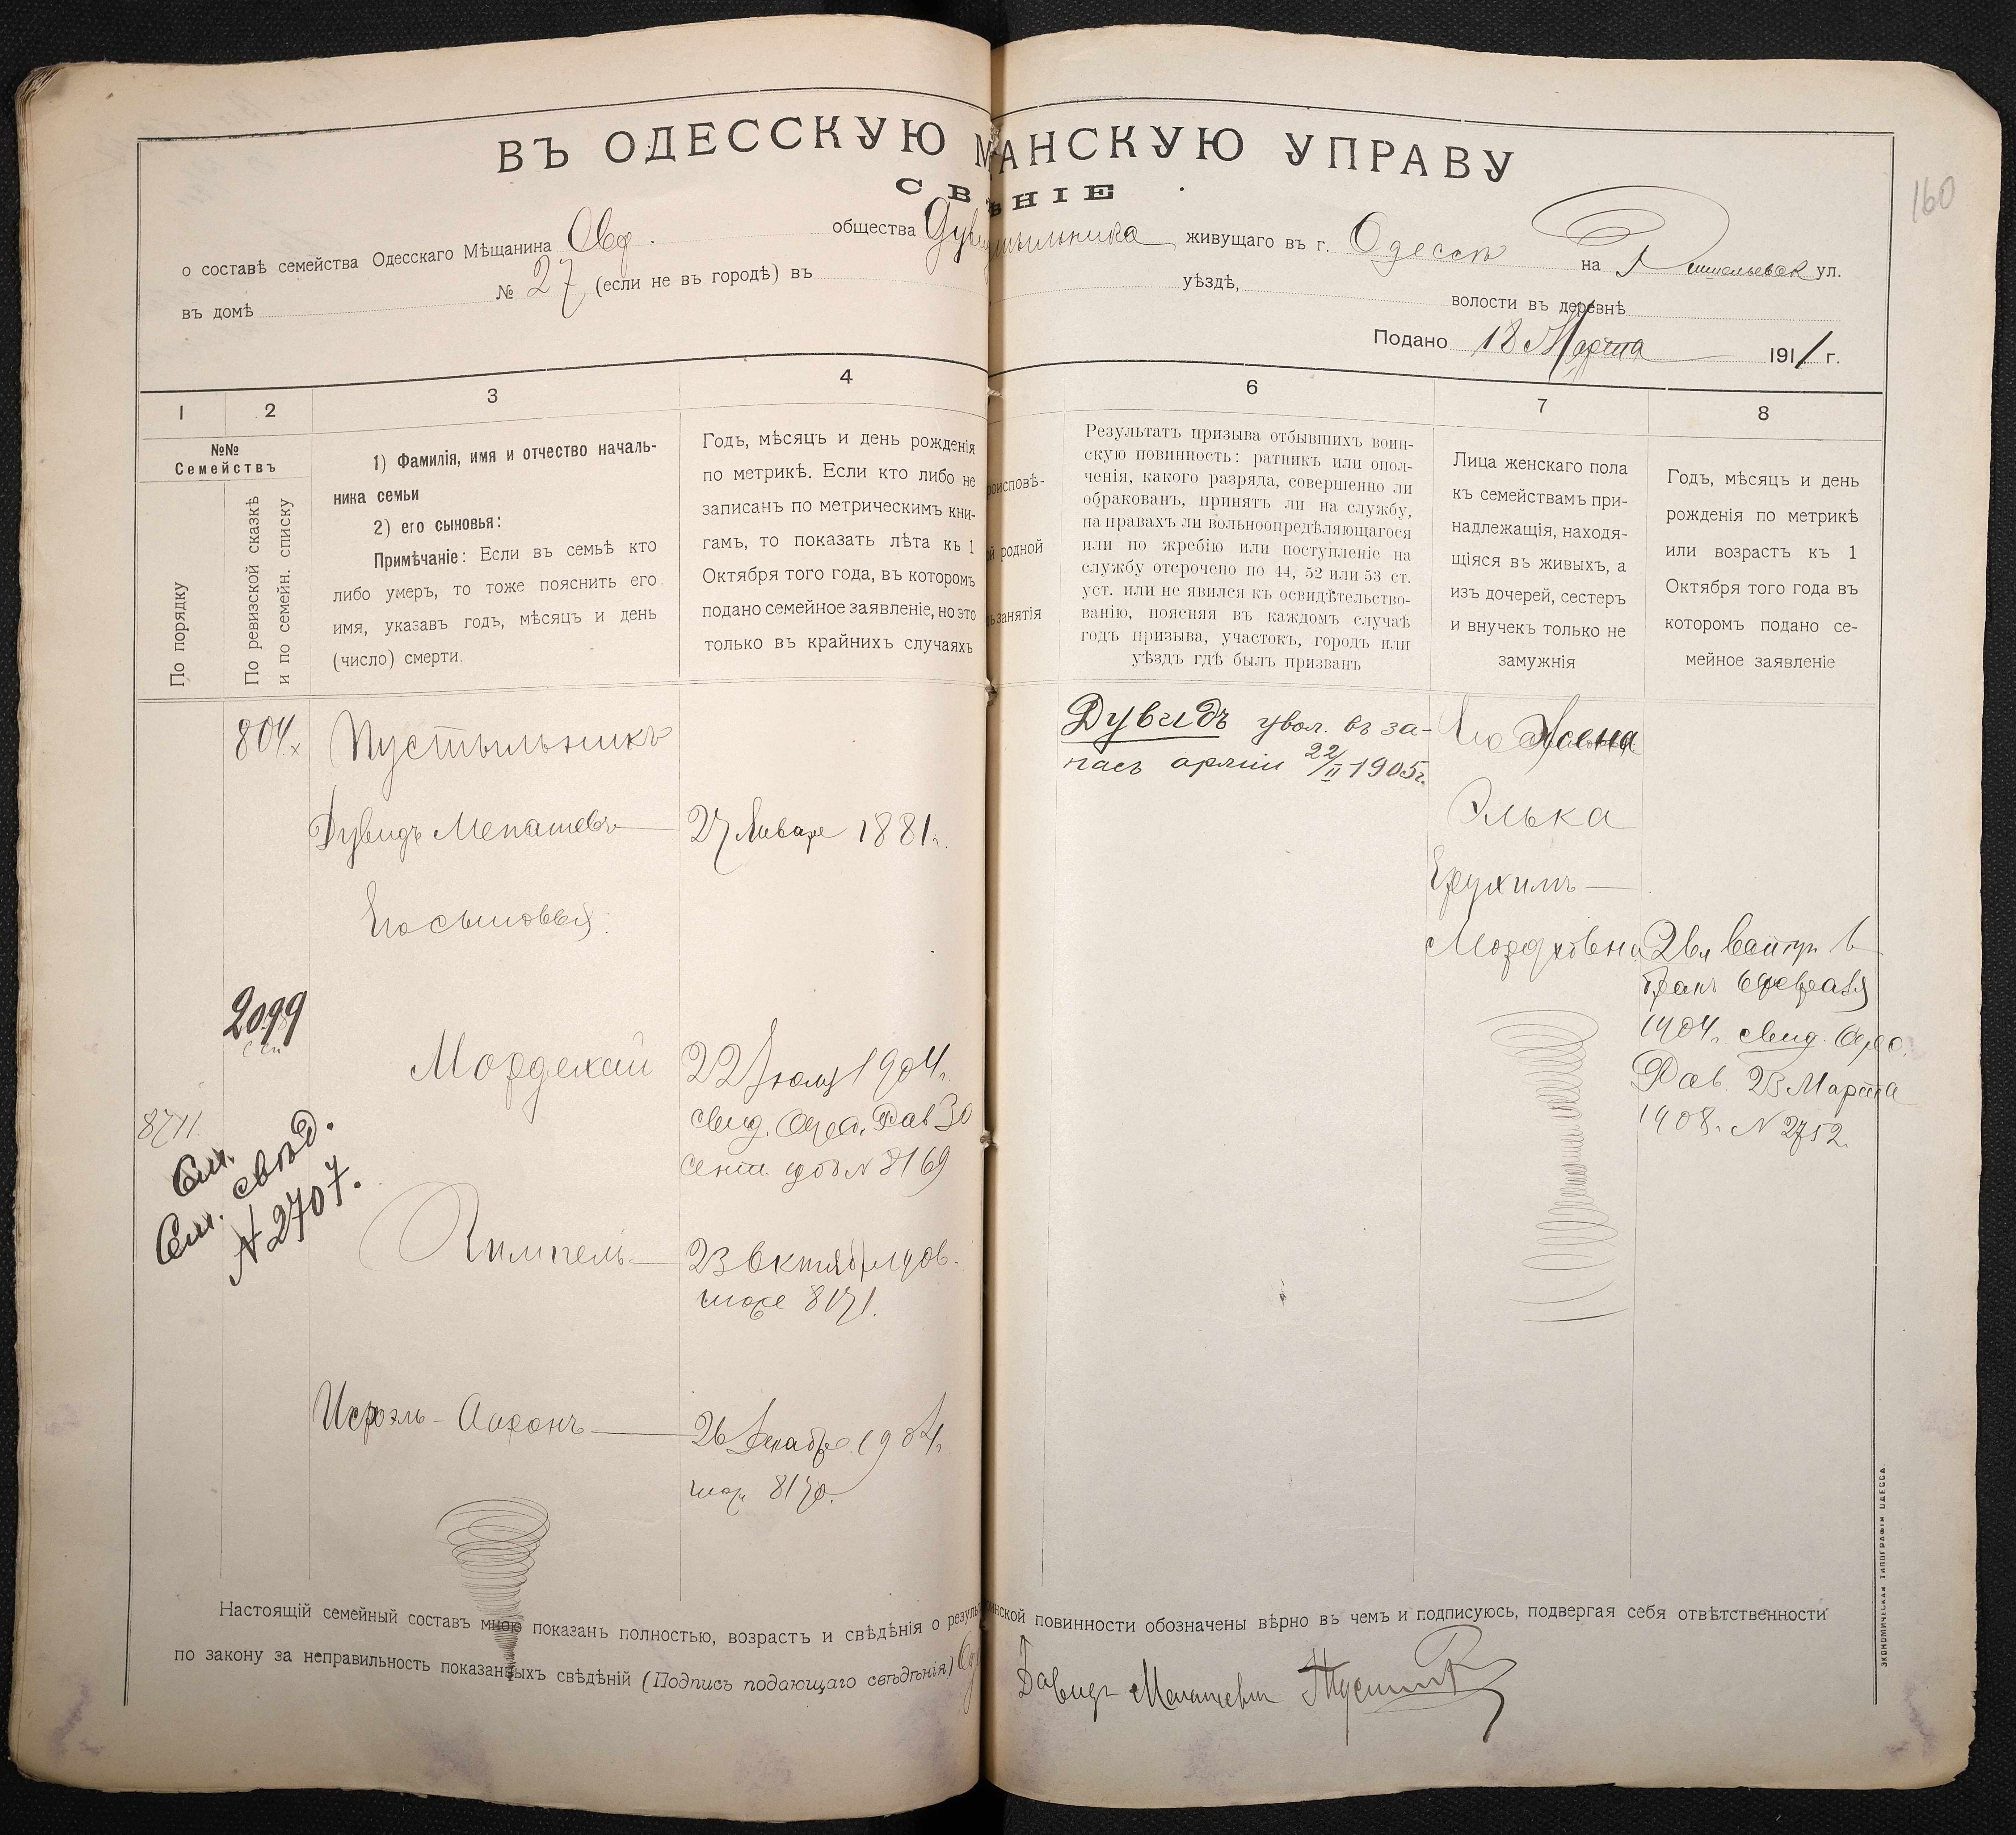 ВЪ ОДЕССКУЮ МАНСКУЮ УПРАВУ
СВѢНІЕ
160
о составѣ семейства Одесскаго Мѣщанина общества живущаго въ г. Одессѣ на Ришельевск ул.
въ домѣ № 27 (если не въ городѣ) въ уѣздѣ, волости въ деревнѣ
Подано 18 Марта 1911 г.
1
2
3
4
6
7
8
№№
Семействъ
По порядку
По ревизской сказкѣ
и по семейн. списку
1) Фамилія, имя и отчество началь-
ника семьи
2) его сыновья:
Примѣчаніе: Если въ семьѣ кто
либо умеръ, то тоже пояснить его
имя, указавъ годъ, мѣсяцъ и день
(число) смерти.
Годъ, мѣсяцъ и день рожденія
по метрикѣ. Если кто либо не
записанъ по метрическимъ кни-
гамъ, то показать лѣта къ 1
Октября того года, въ которомъ
подано семейное заявленіе, но это
только въ крайнихъ случаяхъ
роисповѣ-
й родной
ь занятія
Результатъ призыва отбывшихъ воин-
скую повинность: ратникъ или опол-
ченія, какого разряда, совершенно ли
обракованъ, принятъ ли на службу,
на правахъ ли вольноопредѣляющагося
или по жребію или поступленіе на
службу отсрочено по 44, 52 или 53 ст.
уст. или не явился къ освидѣтельство-
ванію, поясняя въ каждомъ случаѣ
годъ призыва, участокъ, городъ или
уѣздъ гдѣ былъ призванъ
Лица женскаго пола
къ семействамъ при-
надлежащія, находя-
щіяся въ живыхъ, а
изъ дочерей, сестеръ
и внучекъ только не
замужнія
Годъ, мѣсяцъ и день
рожденія по метрикѣ
или возрастъ къ 1
Октября того года въ
которомъ подано се-
мейное заявленіе
804 x
Пустыльникъ
Дувидъ Менашевъ
27 Января 1881 г.
Его сыновья:
2099
Мордехай
22 Іюля 1904 г.
свид. Одес. Рав 30
сент. № 8169
8711
См.
См. свѣд.
№ 2707.
Кимпель
23 Октября 1906.
тоже 8171.
Исроэль-Ааронъ
26 Декабря 1907 г.
тоже 8170.
Дувидъ увол. въ за-
пасъ арміи 22/II 1905 г.
Его Жена
Элька
Ерухимъ
Мордковна
бракъ 6 февраля
1904 г. свид. Одес.
Рав. 23 Марта
1908 г. № 2752.
Настоящій семейный составъ мною показанъ полностью, возрастъ и свѣдѣнія о резуль инской повинности обозначены вѣрно въ чемъ и подписуюсь, подвергая себя отвѣтственности
по закону за неправильность показанныхъ свѣдѣній (Подпись подающаго свѣдѣнія) Давидъ Менашевъ
ЭКОНОМИЧЕСКАЯ ТИПОГРАФІЯ ОДЕССА.